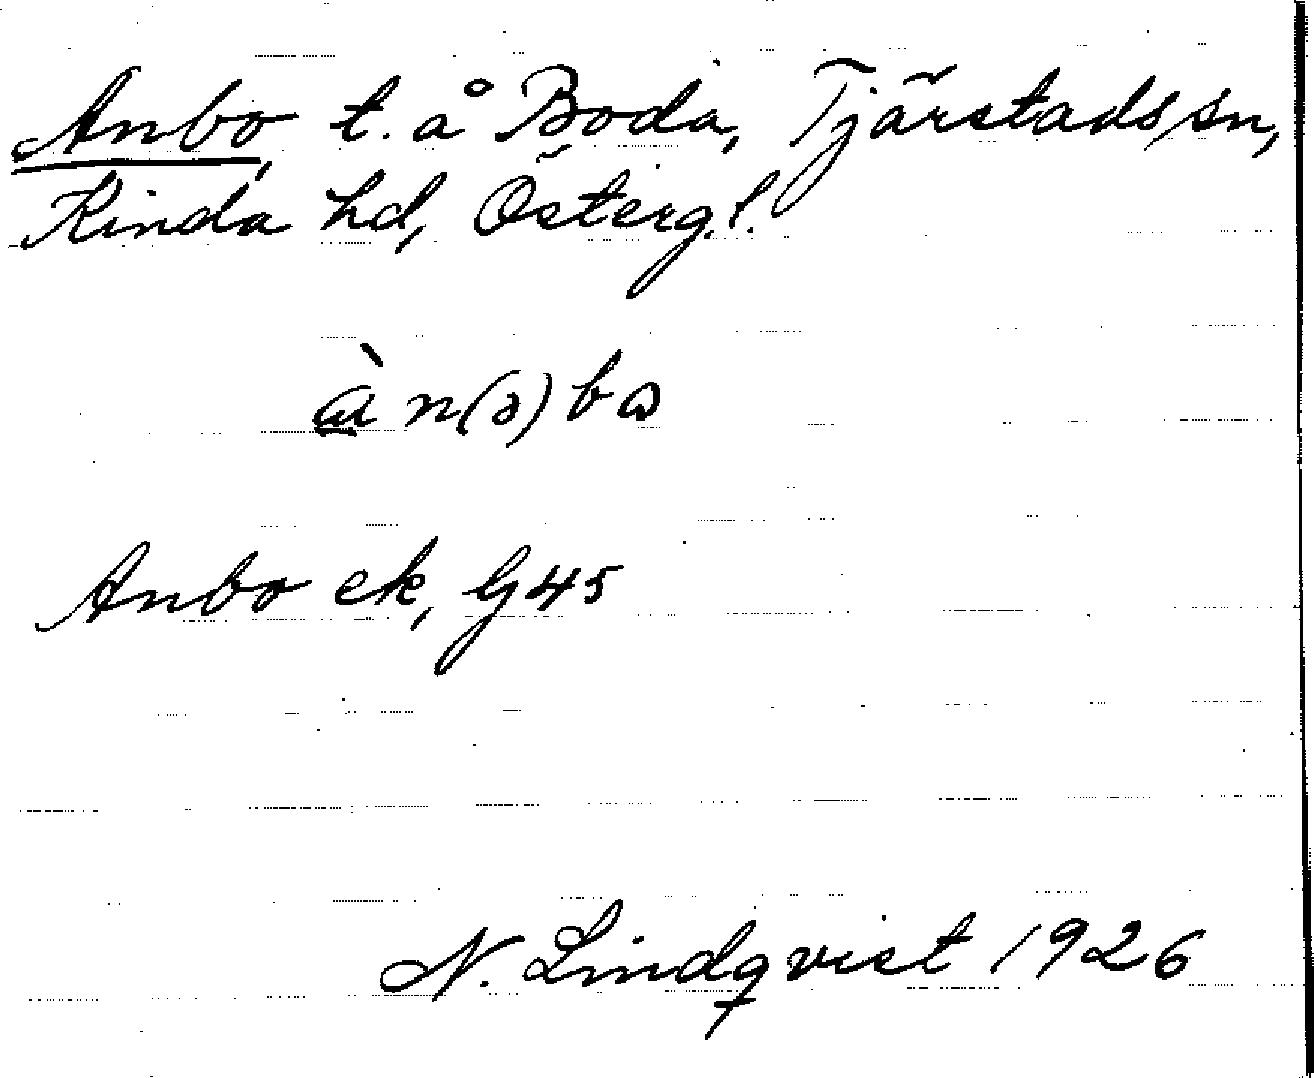 Anbo, t. å Boda, Tjärstads sn,
Kinda hd, Österg. l.
àn(ə)bɷ
Anbo ek, G45
N. Lindqvist 1926